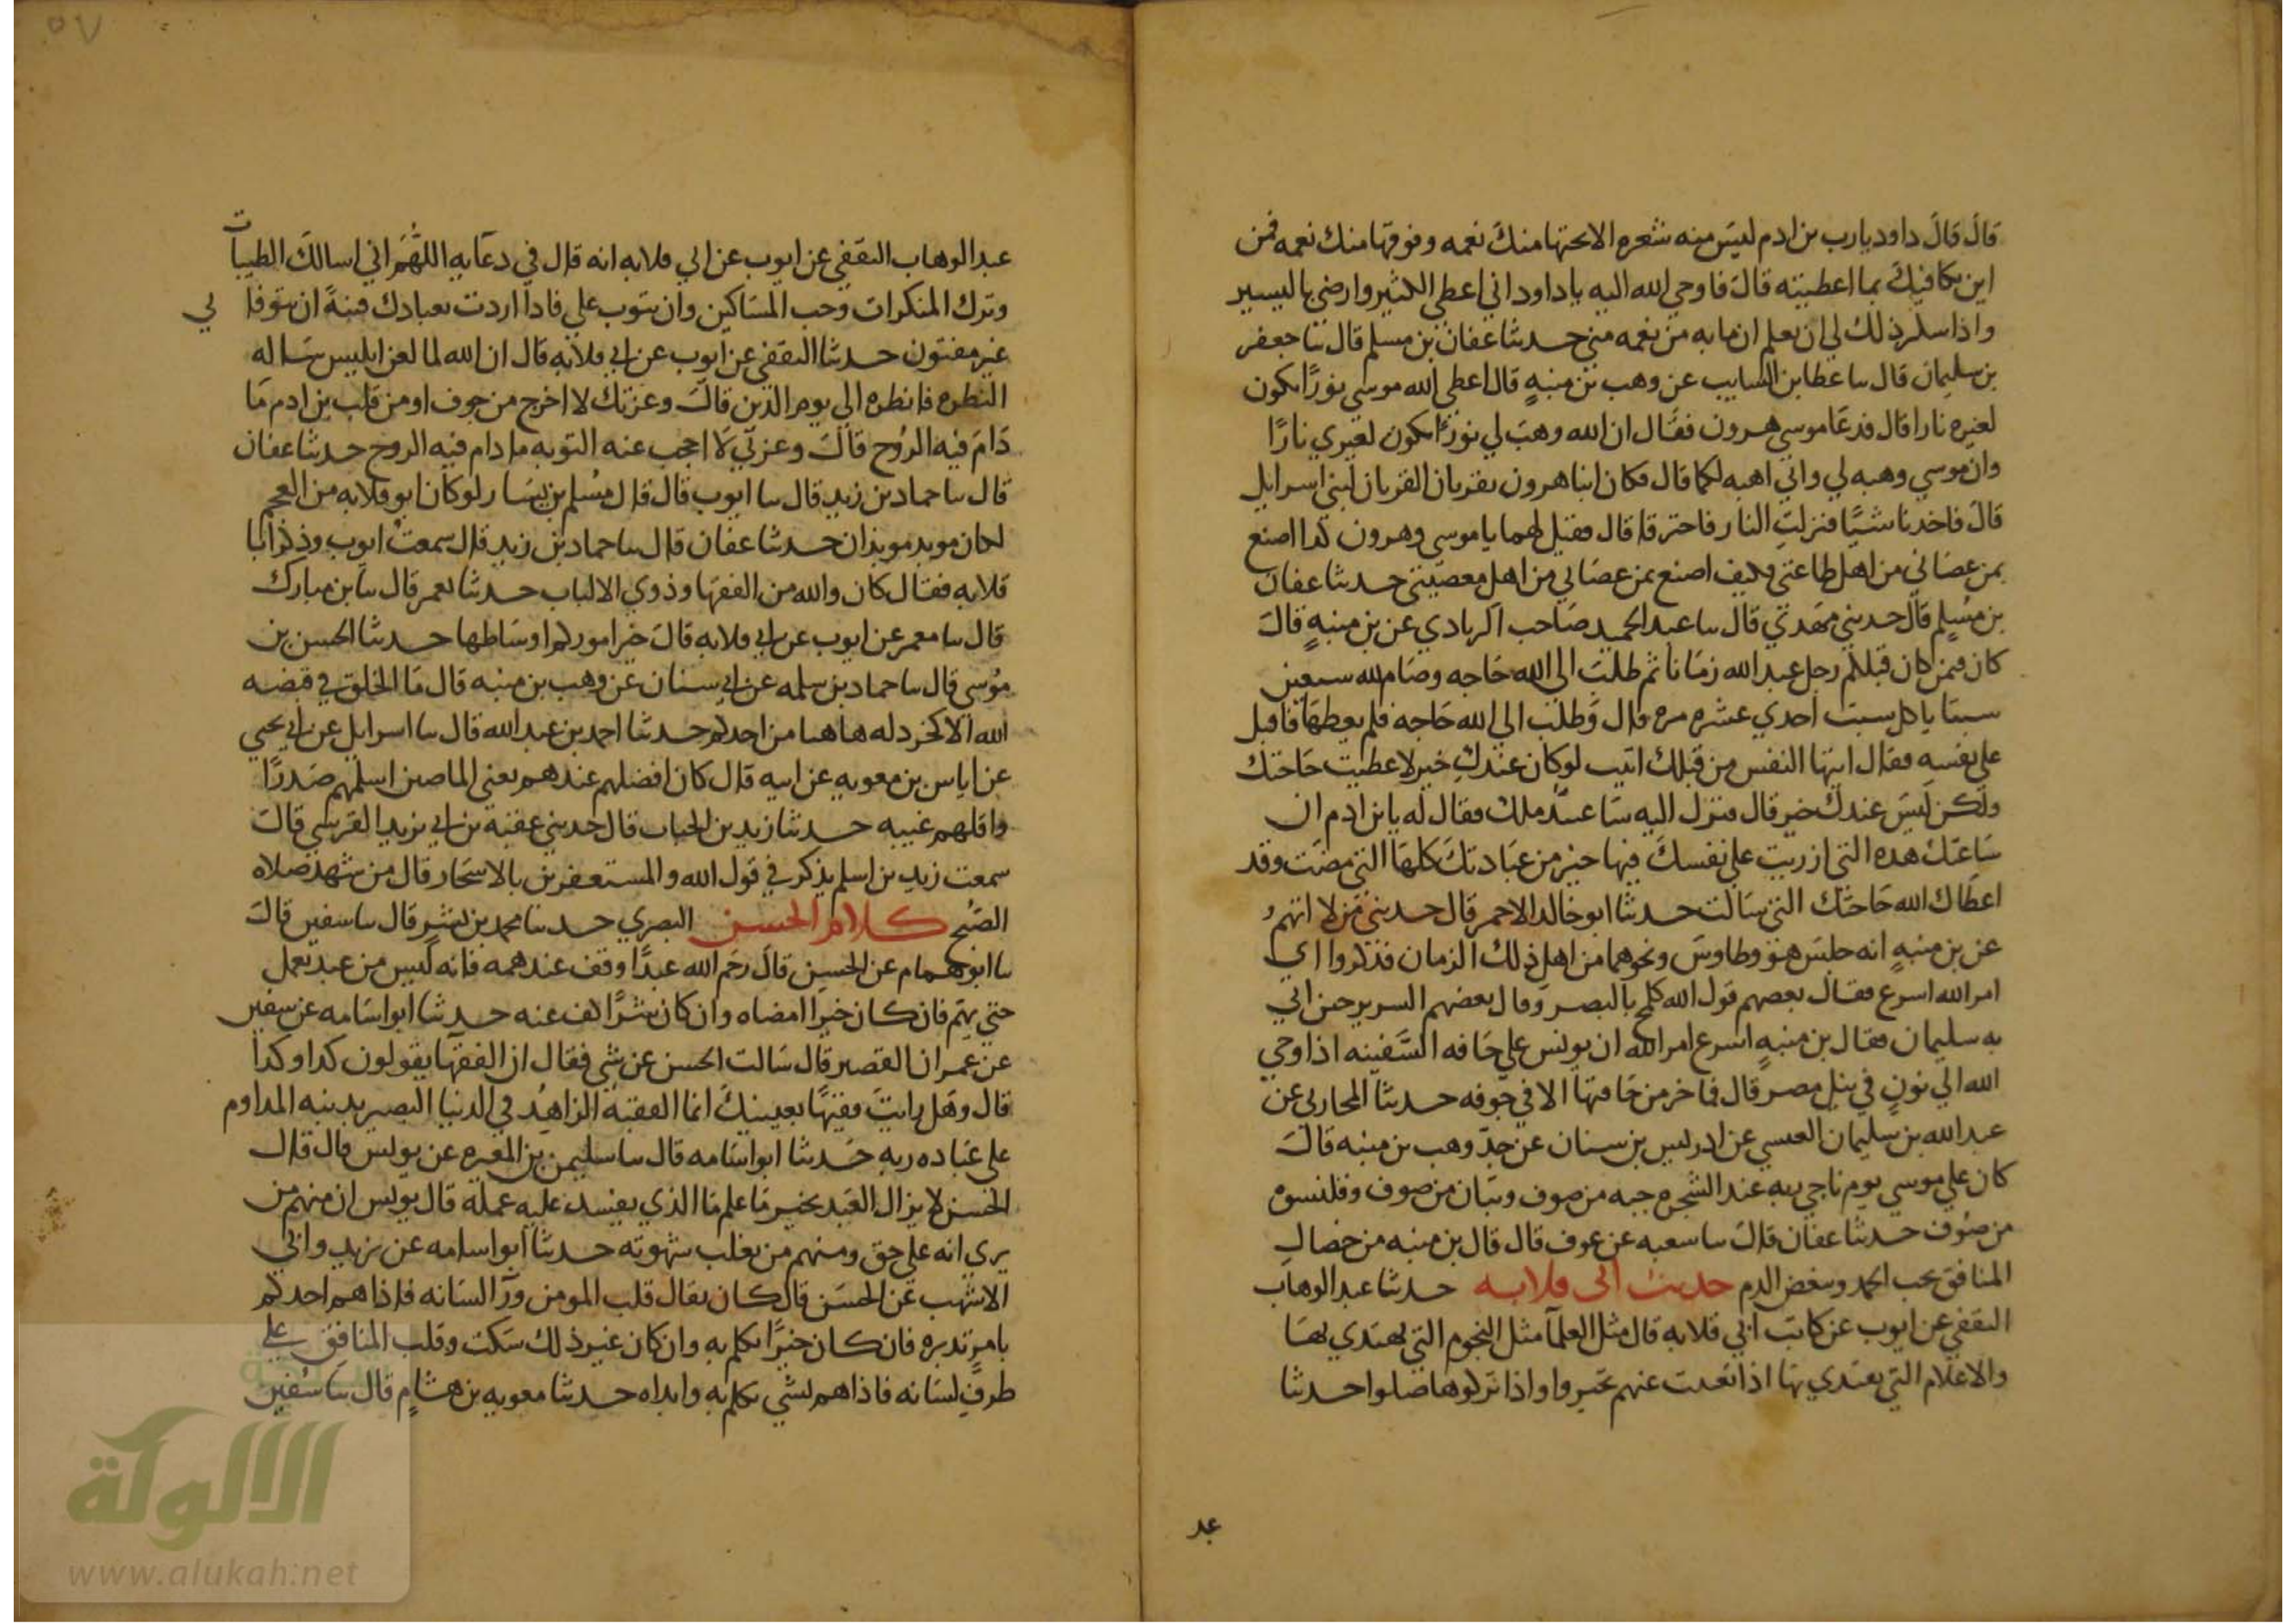 قال قال داود يارب بن ادم ليس منه شعره الا تحتها منك نعمه وفوقها منك نعمه فمن
اين يكافيك بما اعطيته قال فاوحي الله اليه ياداود اني اعطي الكثير وارضي باليسير
واذا شكر ذلك لي ان يعلم ان مابه من نعمه مني حدثنا عفان بن مسلم قال سا جعفر
بن سليمان قال سا عطا بن السايب عن وهب بن منبه قال اعطي الله موسي نورًا يكون
لغيره نارا قال فدعا موسي هرون فقال ان الله وهب لي نورًا يكون لغيري نارًا
وان موسي وهبه لي واني اهبه لكما قال فكان ابنا هرون يقربان القربان لبني اسرايل
قال فاحدثا شيًا فنزلت النار فاحترقا قال فقيل لهما ياموسي وهرون كذا اصنع
بمن عصاني من اهل طاعتي فكيف اصنع بمن عصاني من اهل معصيتي حدثنا عفان
بن مسلم قال حدثني مهدي قال سا عبد الحميد صاحب الزيادي عن بن منبه قال
كان فيمن كان قبلكم رجل عبد الله زمانا ثم طلب الي الله حاجه وصام لله سبعين
سبتا ياكل سبت احدي عشره مره قال وطلب الي الله حاجه فلم يعطها فاقبل
علي نفسه فقال ايتها النفس من قبلك اتيت لوكان عندك خير لاعطيت حاجتك
ولكن ليس عندك خير قال فنزل اليه ساعتئذ ملك فقال له يابن ادم ان
ساعتك هذه التي ازريت علي نفسك فيها خير من عبادتك كلها التي مضت وقد
اعطاك الله حاجتك التي سالت حدثنا ابو خالد الاحمر قال حدثني من لا اتهم
عن بن منبه انه جلس هو وطاوس ونحوهما من اهل ذلك الزمان فذكروا اي
امر الله اسرع فقال بعضهم قول الله كلمح بالبصر وقال بعضهم السرير حين اتي
به سليمان فقال بن منبه اسرع امر الله ان يونس علي حافه السفينه اذ اوحي
الله الي نون في نيل مصر قال فما خر من حافتها الا في جوفه حدثنا المحاربي عن
عبد الله بن سليمان العبسي عن ادريس بن سنان عن جد وهب بن منبه قال
كان علي موسي يوم ناجي ربه عند الشجره جبه من صوف وتبان من صوف وقلنسوه
من صوف حدثنا عفان قال سا سعبه عن عوف قال قال بن منبه من خصال
المنافق يحب الحمد ويبغض الذم حديث ابي قلابه حدثنا عبد الوهاب
الثقفي عن ايوب عن كاتب ابي قلابه قال مثل العلما مثل النجوم التي يهتدي بها
والاعلام التي يقتدي بها اذا تغيبت عنهم تحيروا واذا تركوها ضلوا حدثنا
عبد
٥٧
عبد الوهاب الثقفي عن ايوب عن ابي قلابه انه قال في دعايه اللهم اني اسالك الطيبات
وترك المنكرات وحب المساكين وان تتوب علي فاذا اردت بعبادك فتنةً ان توفاني
غير مفتون حدثنا الثقفي عن ايوب عن ابي قلابه قال ان الله لما لعن ابليس ساله
النظره فانظره الي يوم الدين قال وعزتك لا اخرج من جوف او من قلب بن ادم ما
دام فيه الروح قال وعزتي لا احجب عنه التوبه ما دام فيه الروح حدثنا عفان
قال سا حماد بن زيد قال سا ايوب قال قال مسلم بن يسار لوكان ابو قلابه من العجم
لكان موبد موبذان حدثنا عفان قال سا حماد بن زيد قال سمعت ايوب وذكر ابا
قلابه فقال كان والله من الفقها وذوي الالباب حدثنا معمر قال سا بن مبارك
قال سا معمر عن ايوب عن ابي قلابه قال خير اموركم اوساطها حدثنا الحسن بن
موسي قال سا حماد بن سلمه عن ابي سنان عن وهب بن منبه قال ما الخلق في قبضه
الله الا كخردله هاهنا من احدكم حدثنا احمد بن عبد الله قال سا اسرايل عن ابي يحيي
عن اياس بن معويه عن ابيه قال كان افضلهم عندهم يعني الماضين اسلمهم صدرًا
واقلهم غيبه حدثنا زيد بن الحباب قال حدثني عقبه بن ابي يزيد القرشي قال
سمعت زيد بن اسلم يذكر في قول الله والمستغفرين بالاسحار قال من شهد صلاه
الصبح كلام الحسن البصري حدثنا محمد بن بشر قال سا سفين قال
سا ابو همام عن الحسن قال رحم الله عبدًا وقف عند همه فانه ليس من عبد يعمل
حتي يهم فان كان خيرا امضاه وان كان شرًا كف عنه حدثنا ابو اسامه عن سفين
عن عمران القصير قال سالت الحسن عن شي فقال ان الفقها يقولون كذا وكذا
قال وهل رايت فقيهًا بعينيك انما الفقيه الزاهد في الدنيا البصير بدينه المداوم
علي عباده ربه حدثنا ابو اسامه قال سا سليمن بن المغيره عن يونس قال قال
الحسن لا يزال العبد بخير ما علم ما الذي يفسد عليه عمله قال يونس ان منهم من
يري انه علي حق ومنهم من يغلب شهوته حدثنا ابو اسامه عن يزيد وابي
الاشهب عن الحسن قال كان يقال قلب المومن ورآ لسانه فاذا هم احدكم
بامر تدبره فان كان خيرًا تكلم به وان كان غير ذلك سكت وقلب المنافق علي
طرف لسانه فاذا هم بشي تكلم به وابداه حدثنا معويه بن هشام قال سا سفين
الألوكة
www.alukah.net